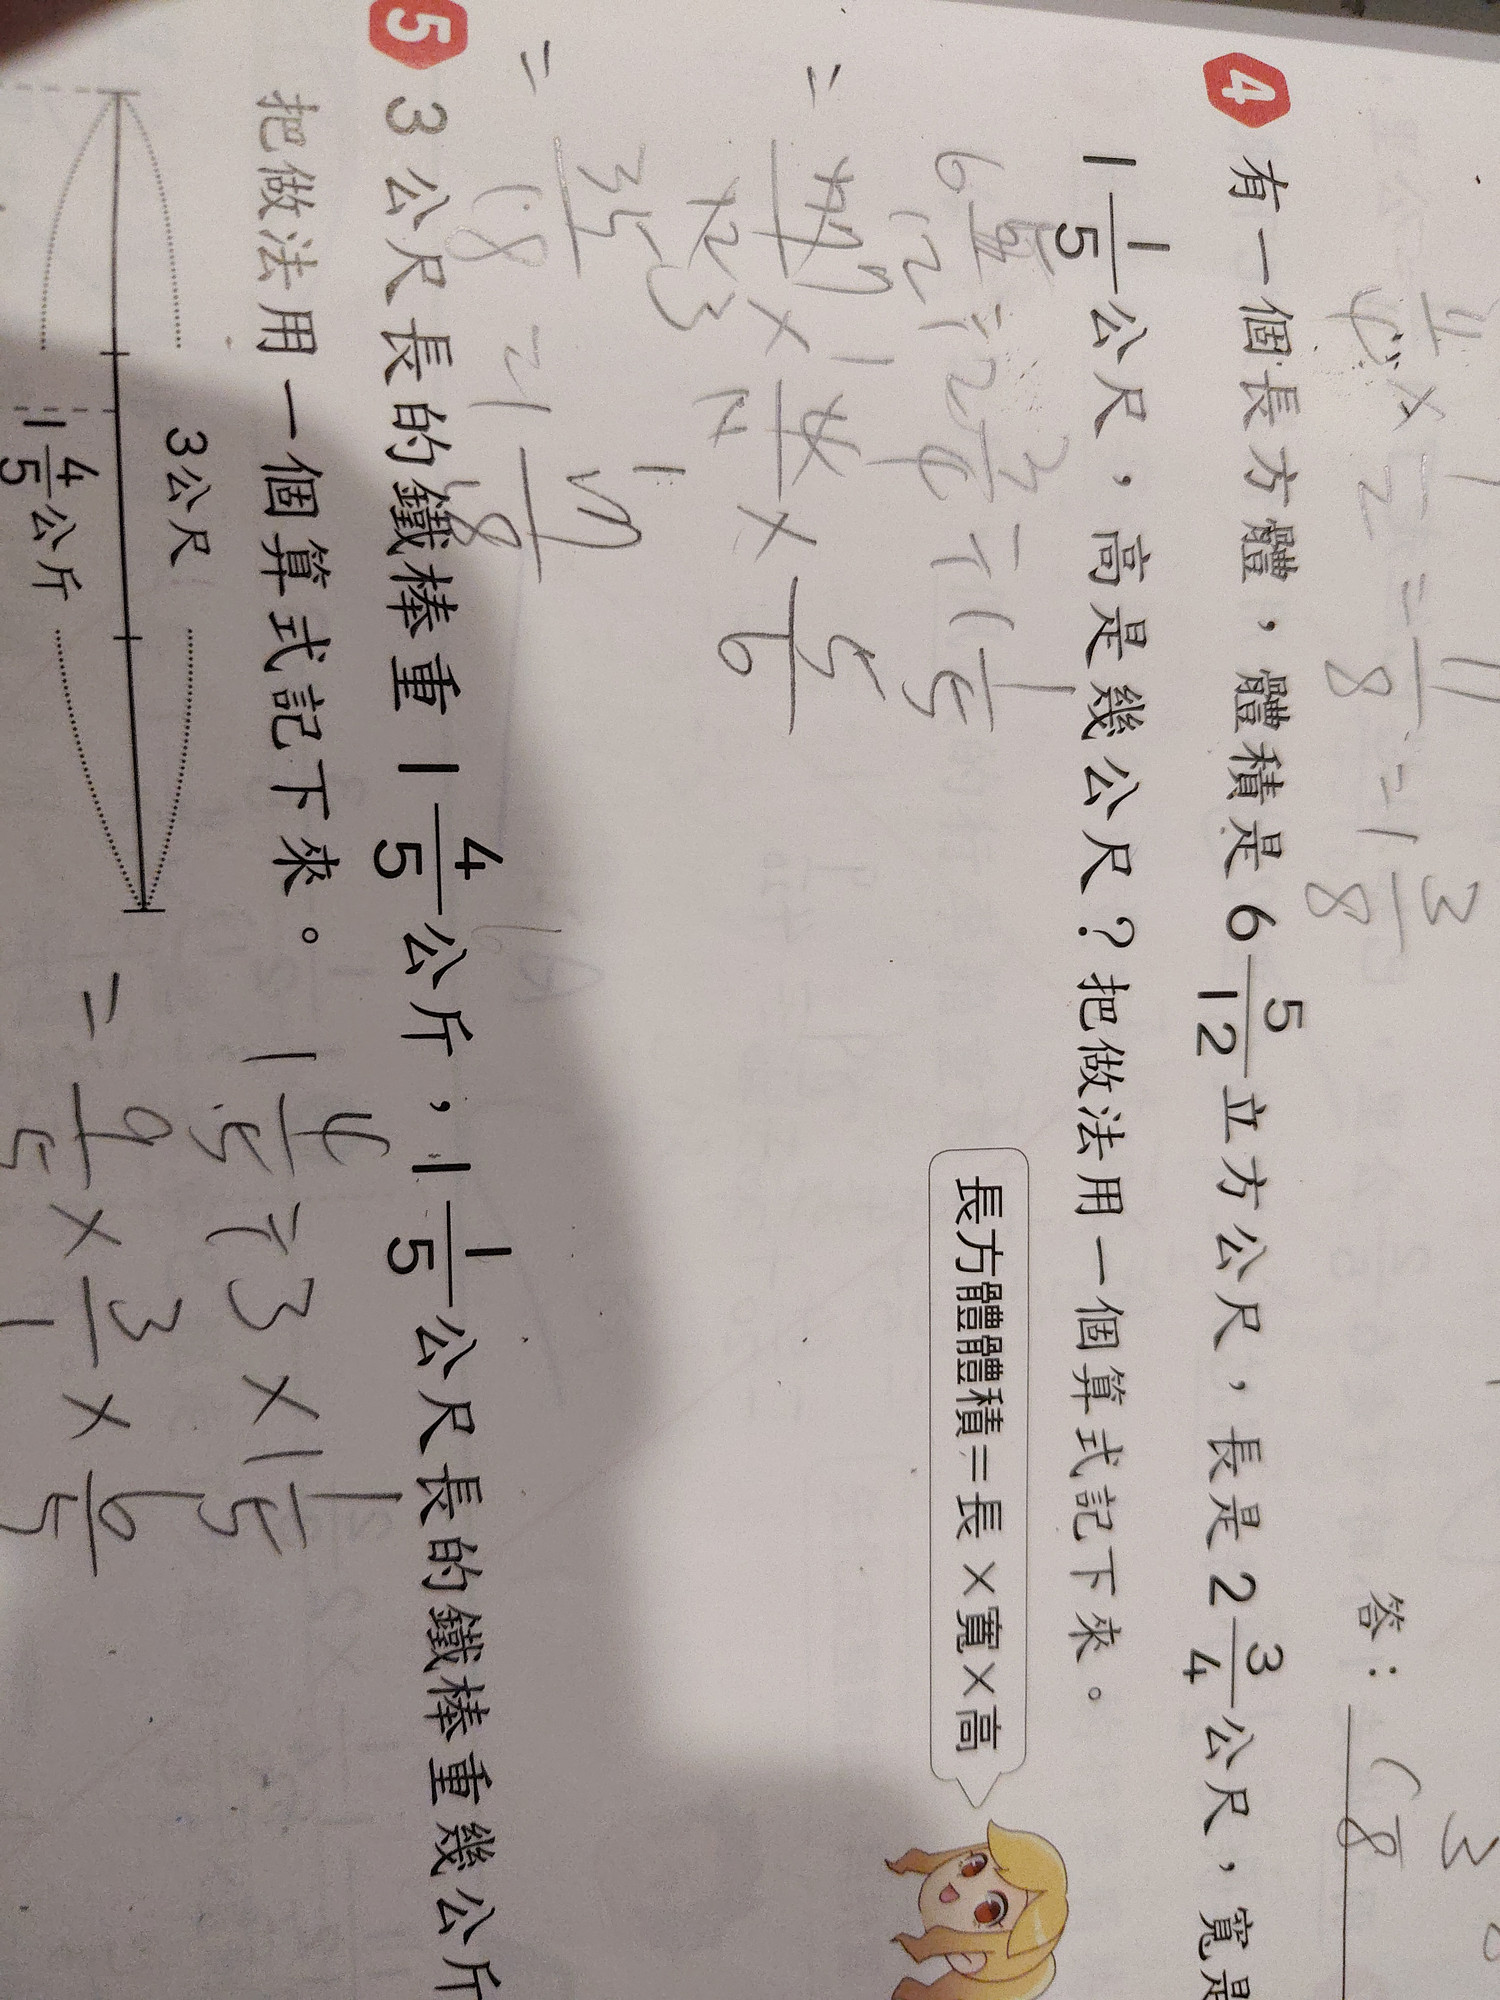 11/4 × 1/2 = 11/8 = 1 3/8
答： 1 3/8
4 有一個長方體，體積是 6 5/12 立方公尺，長是 2 3/4 公尺，寬是
1 1/5 公尺，高是幾公尺？把做法用一個算式記下來。
6 5/12 ÷ 2 3/4 ÷ 1 1/5
長方體體積＝長×寬×高
= 77/12 × 4/11 × 5/6
= 35/18 = 1 17/18
5 3公尺長的鐵棒重 1 4/5 公斤，1 1/5 公尺長的鐵棒重幾公斤
把做法用一個算式記下來。
1 4/5 ÷ 3 × 1 1/5
3公尺
= 9/5 × 3/1 × 6/5
1 4/5 公斤